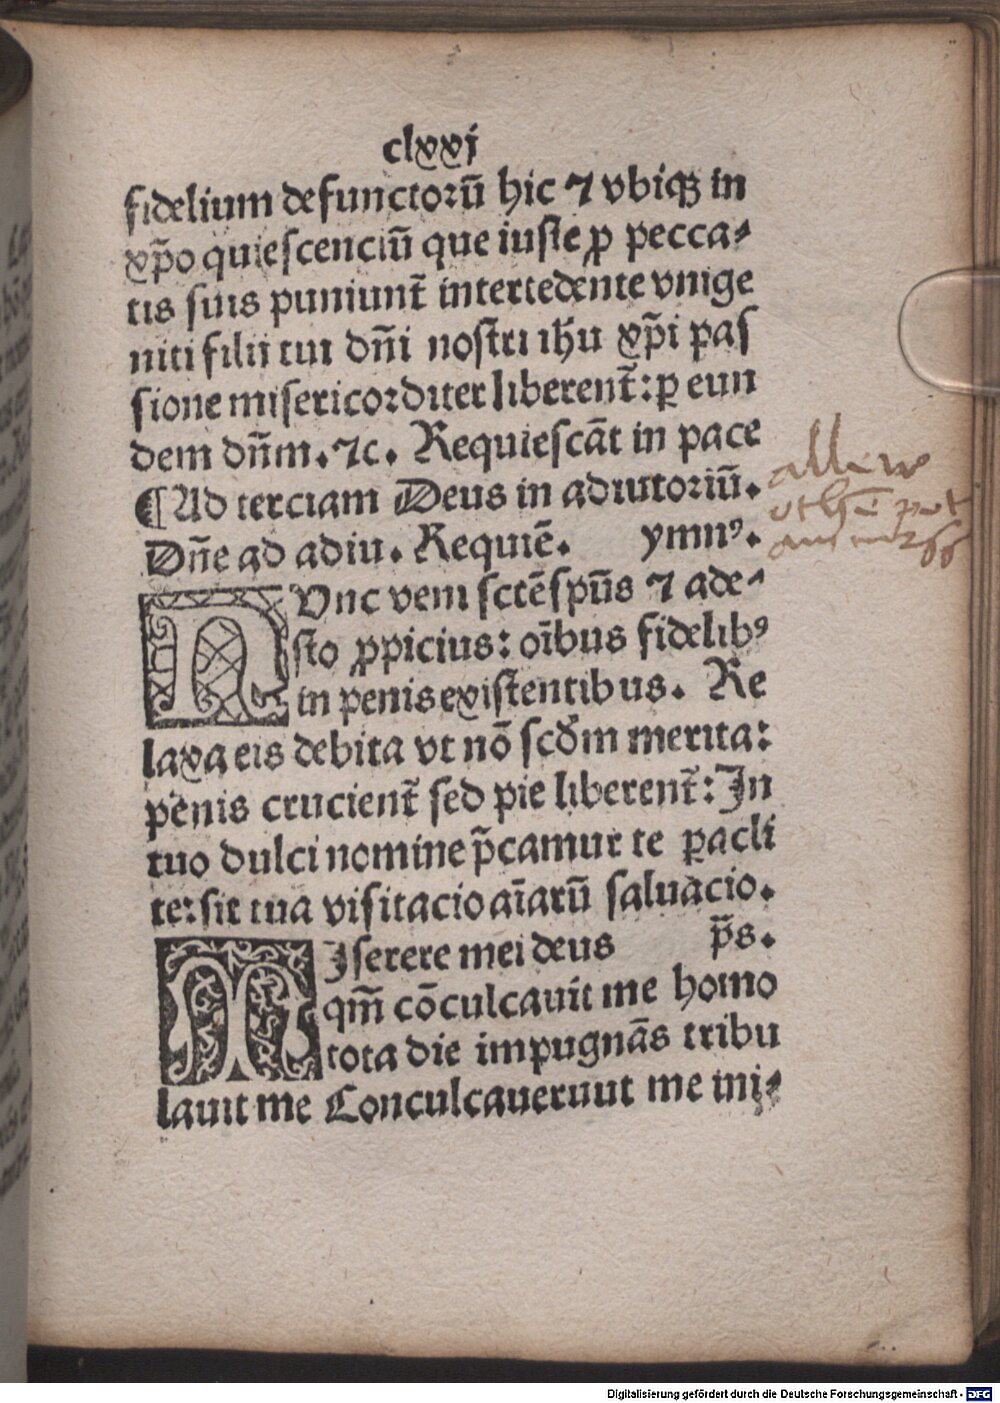 clxxj
fidelium defunctorū hic ⁊ vbiqꝫ in
xp̄o quiescenciū que iuste ꝓ pecca⸗
tis suis puniunt̄ intercedente vnige
niti filii tui dn̄i nostri ihū xp̄i pas
sione misericorditer liberent̄: ꝑ eun
dem dn̄m. ⁊c. Requiescāt in pace
¶ Ad terciam Deus in adiutoriū.
Dn̄e ad adiu. Requiē. ymnꝰ.
NUnc veni sctē spūs ⁊ ade⸗
sto ꝓpicius: oībus fidelibꝰ
in penis existentibus. Re
laxa eis debita vt nō scd̄m merita:
penis crucient̄ sed pie liberent̄: In
tuo dulci nomine p̄camur te ꝑacli
te: sit tua visitacio aīarū saluacio.
MIserere mei deus p̄s.
qm̄ cōculcauit me homo
tota die impugnās tribu
lauit me Conculcaueruut me ini⸗
Digitalisierung gefördert durch die Deutsche Forschungsgemeinschaft - DFG